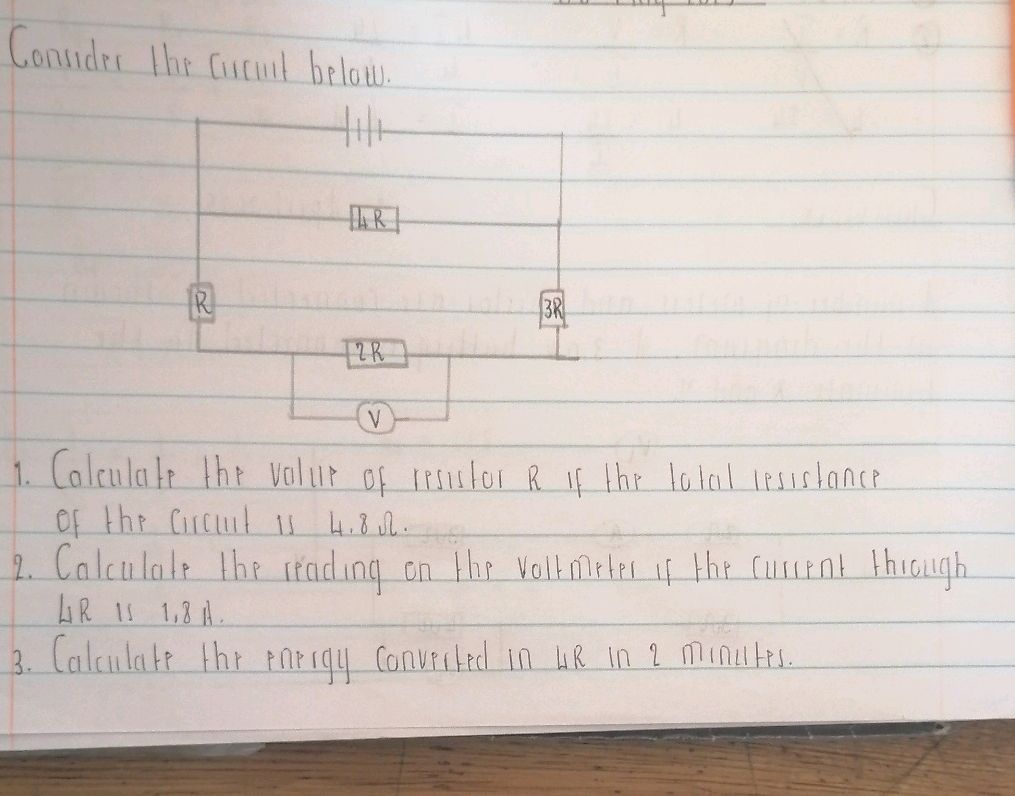 Consider the circuit below.
4R
R
3R
2R
V
1. Calculate the value of resistor R if the total resistance
of the circuit is 4.8 Ω.
2. Calculate the reading on the voltmeter if the current through
4R is 1,8 A.
3. Calculate the energy converted in 4R in 2 minutes.